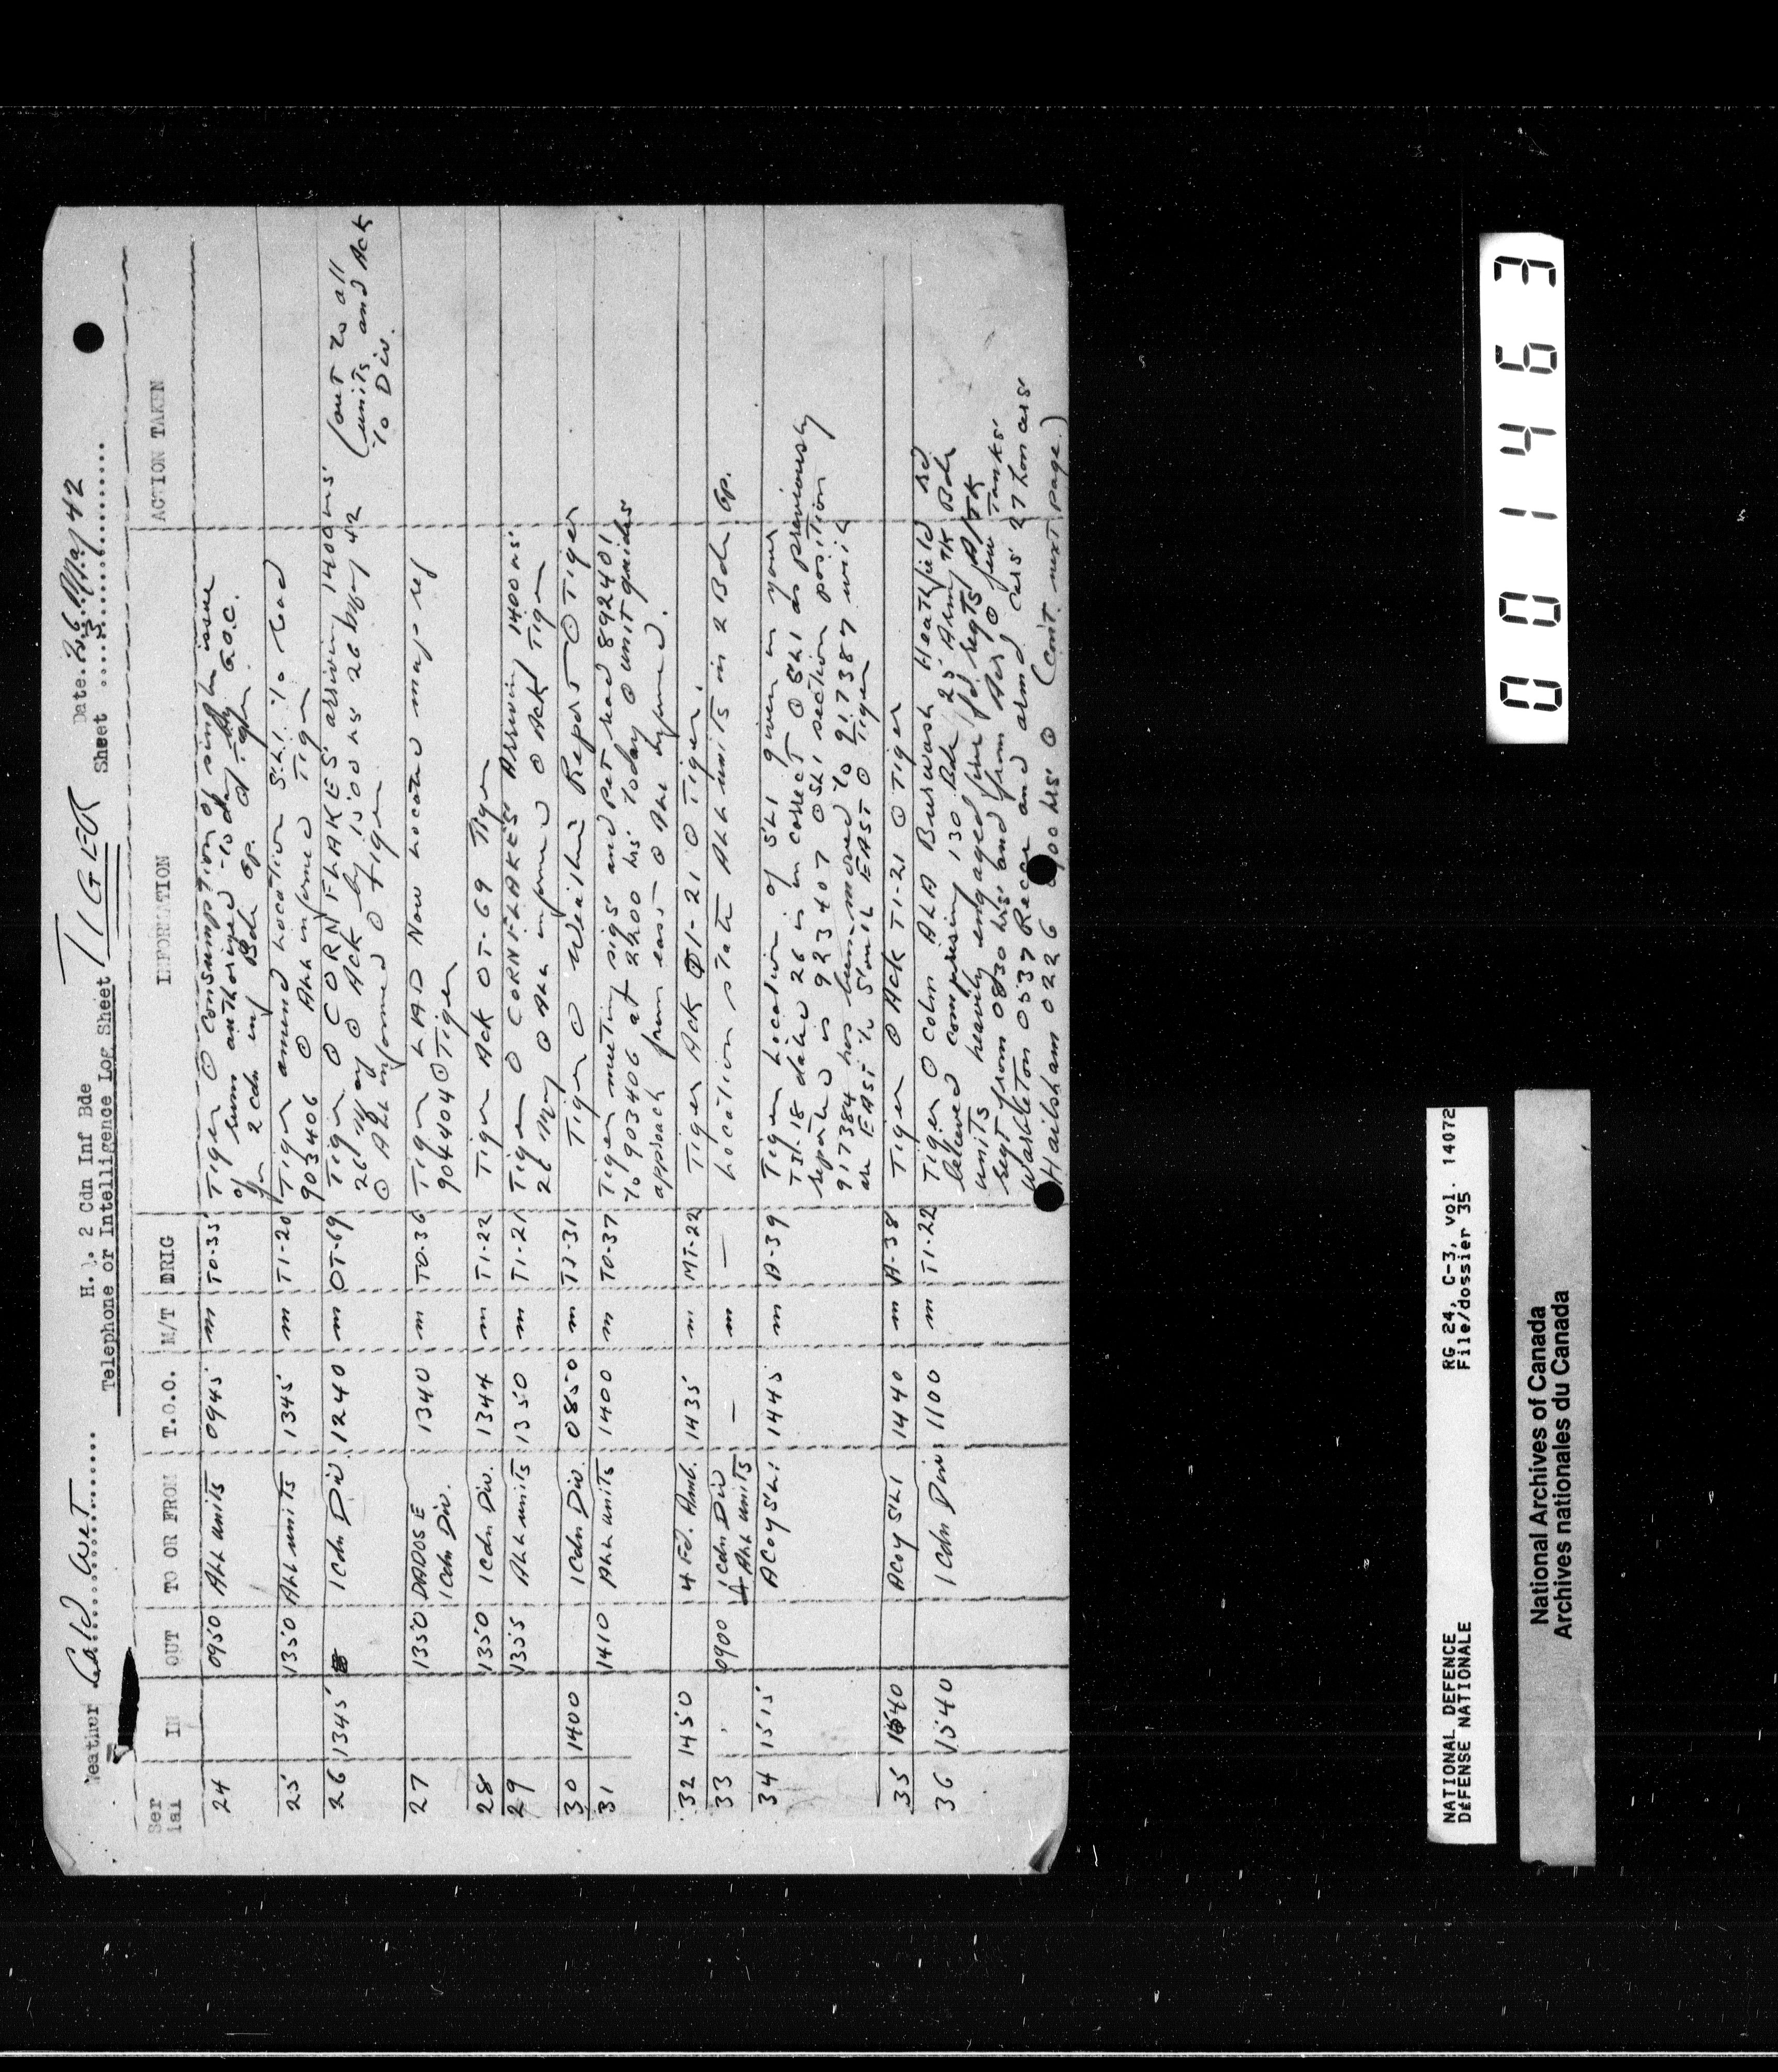 Weather Cold Wet
H.Q. 2 Cdn Inf Bde
Telephone or Intelligence Log Sheet TIGER
Date 26 May 42
Sheet 3
Ser ial IN OUT TO OR FROM T.O.O. M/T ORIG INFORMATION ACTION TAKEN
24 0950 All units 0945 m TO-35 Tiger ⊙ consumption of single issue
of rum authorized to-day by G.O.C.
for 2 Cdn inf Bde Gp.
25 1350 All units 1345 m TI-20 Tiger amend location S.L.I. to read
903406 ⊙ All informed Tiger
26 1345 1 Cdn Div 1240 m OT-69 Tiger ⊙ CORNFLAKES arriving 1400 hrs (out to all
26 May ⊙ Ack by 1500 hrs 26 May 42 (units and Ack
⊙ All informed ⊙ Tiger to Div.
27 1350 DADOS E 1340 m TO-36 Tiger LAD Now located map ref
1 Cdn Div. 904404 ⊙ Tiger
28 1350 1 Cdn Div. 1344 m TI-22 Tiger Ack OT-69 Tiger
29 1355 All units 1350 m TI-21 Tiger ⊙ CORNFLAKES Arriving 1400 hrs
26 May ⊙ All informed ⊙ Ack Tiger
30 1400 1 Cdn Div. 0850 m TJ-31 Tiger ⊙ Weather Report ⊙ Tiger
31 1410 All units 1400 m TO-37 Tiger meeting sigs and pet read 892401
to 903406 at 2200 hrs today ⊙ unit guides
approach from east ⊙ All informed.
32 1450 4 Fd. Amb. 1435 m MT-22 Tiger Ack TI-21 ⊙ Tiger.
33 0900 1 Cdn Div — m — Location state All units in 2 Bde Gp.
& All units
34 1515 A Coy SLI 1445 m A-39 Tiger Location of SLI given in your
TJ-18 dated 26 is in correct ⊙ SLI as previously
reported is 923407 ⊙ SLI section position
917384 has been moved to 917387 will
are EAST ½ mile EAST ⊙ Tiger
35 1540 A Coy SLI 1440 m A-38 Tiger ⊙ Ack TI-21 ⊙ Tiger
36 1540 1 Cdn Div 1100 m TI-22 Tiger ⊙ Colm ALA Burwash Heathfield Rd
believed comprising 130 Bde 25 Army TK Bde
units heavily engaged fire fd regts A/TK
regt from 0830 hrs and from Air ⊙ few Tanks
Warbleton 0537 Recce and armd cars 27 Lorries
Hailsham 0226 0900 hrs ⊙ (cont. next page.)
001463
NATIONAL DEFENCE RG 24, C-3, vol. 14072
DÉFENSE NATIONALE File/dossier 35
National Archives of Canada
Archives nationales du Canada